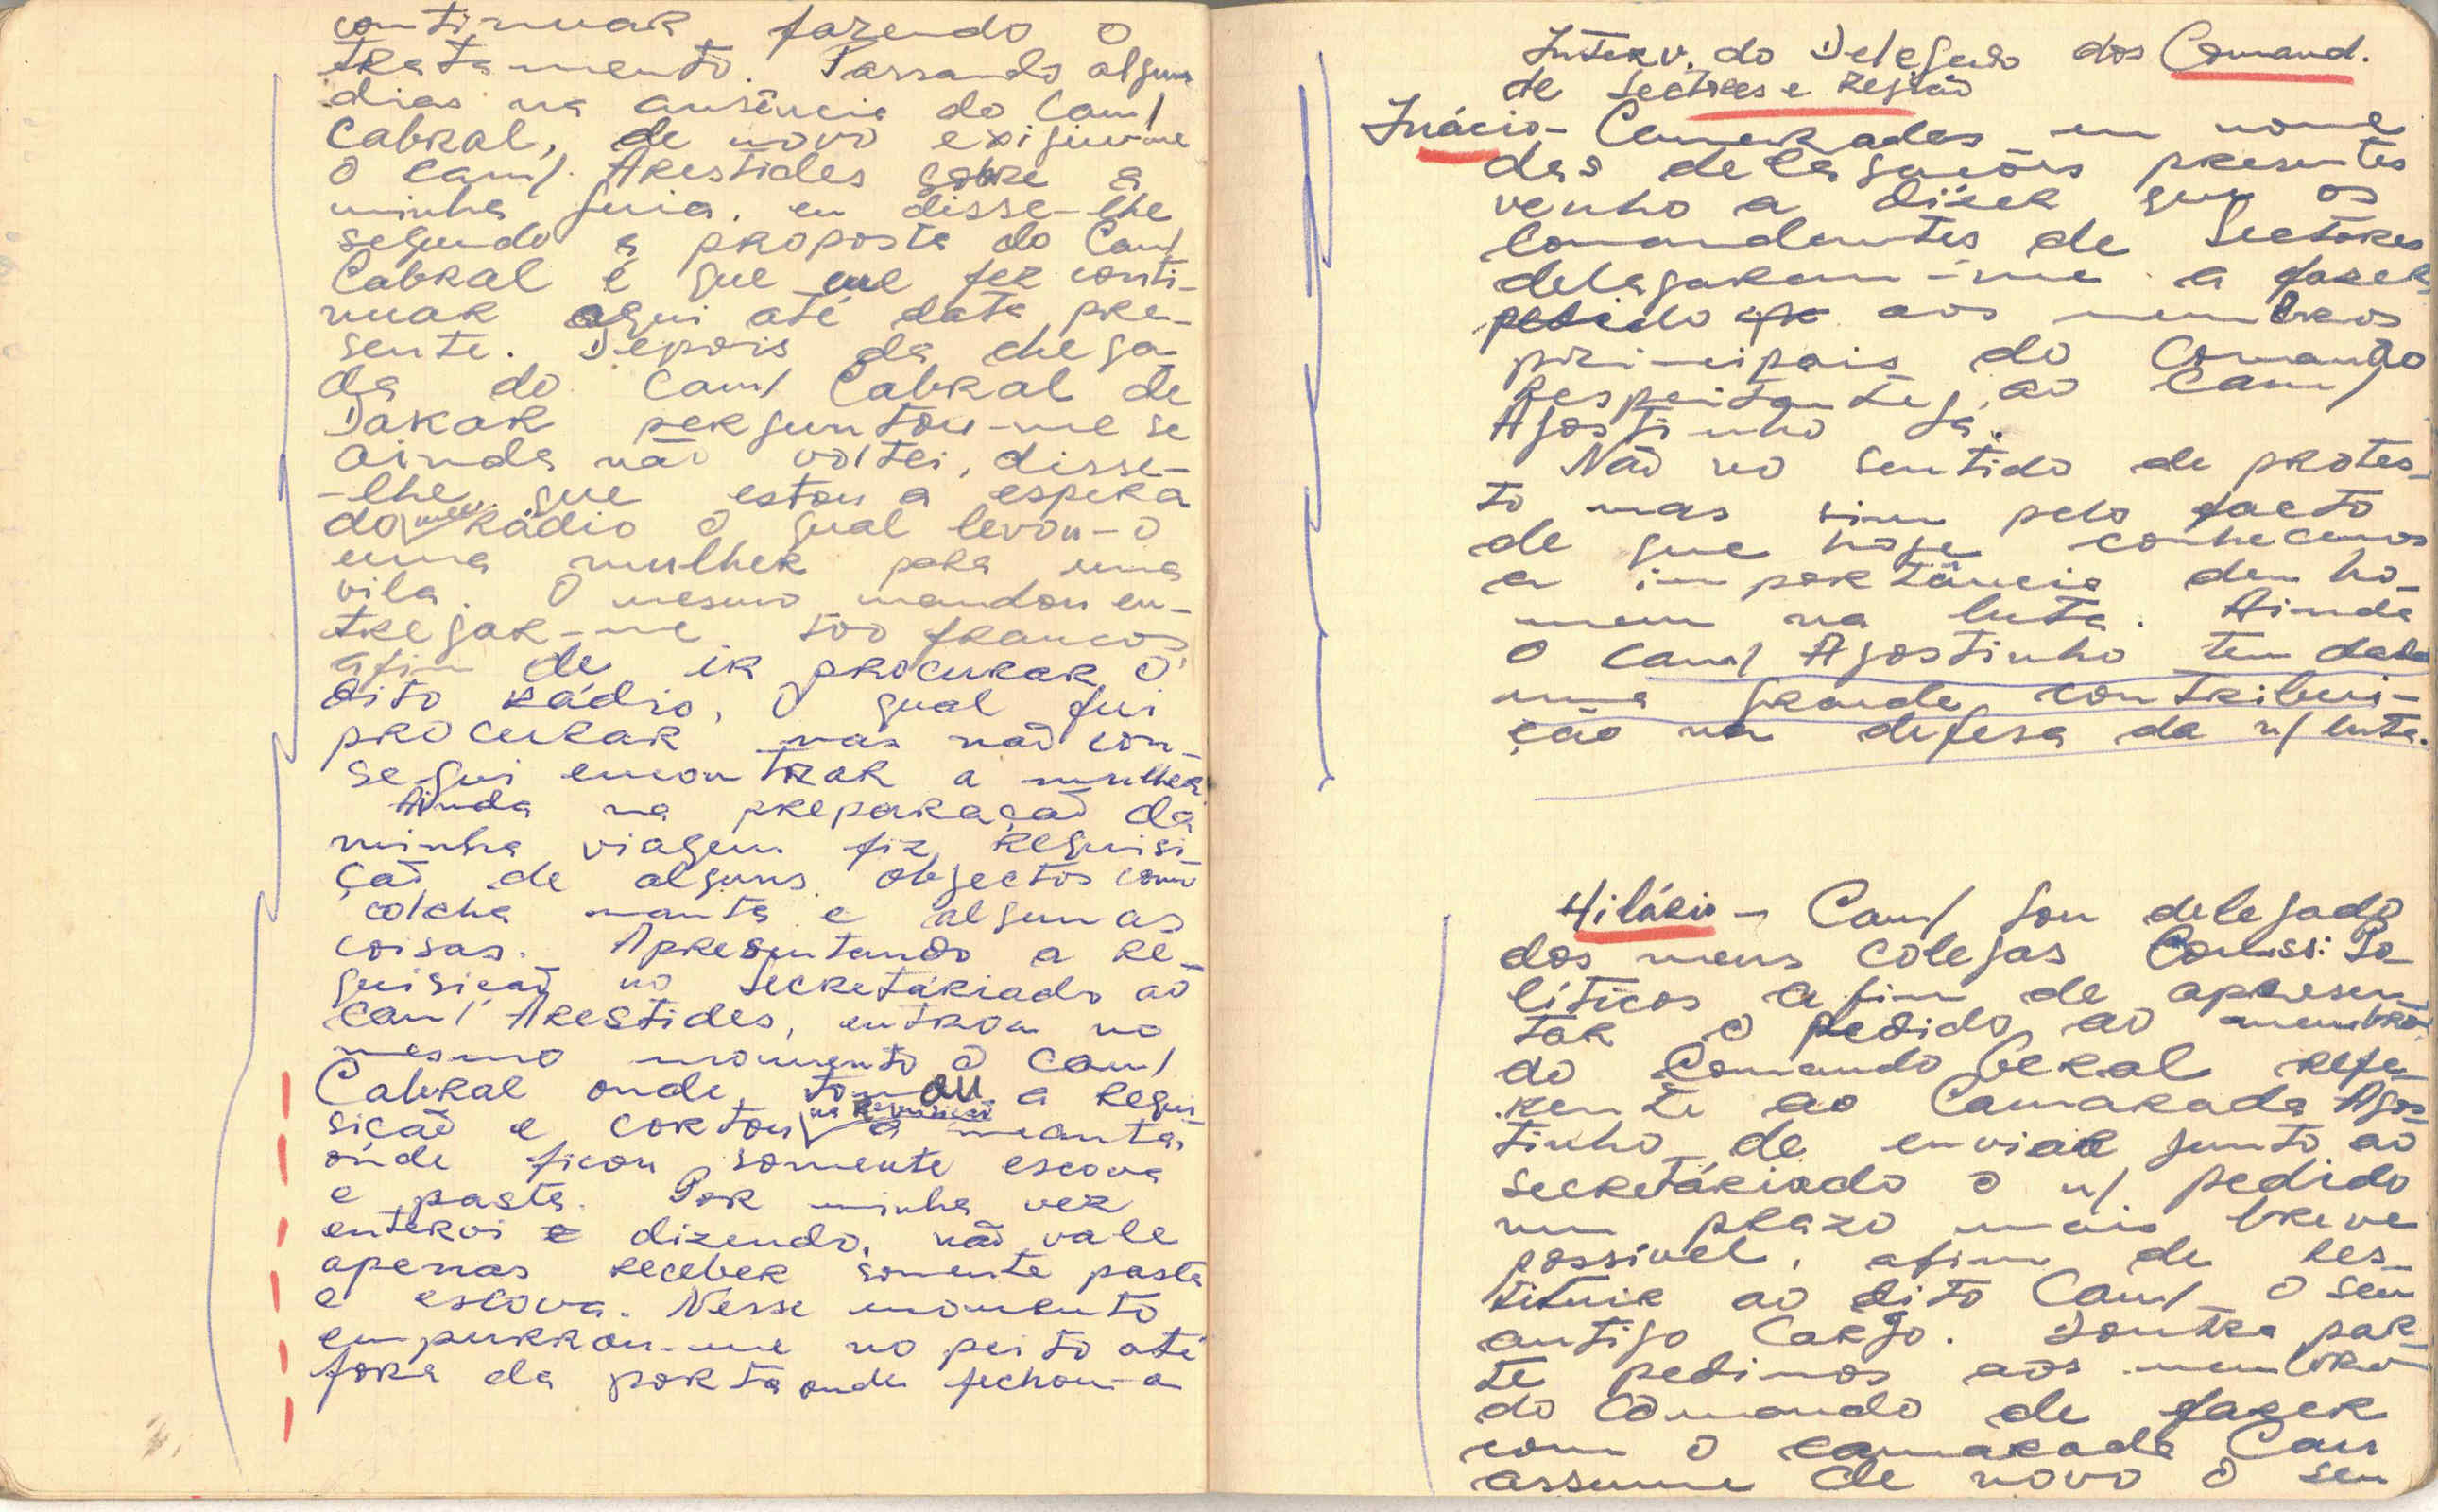 continuar fazendo o
tratamento. Passando algum
dias na ausência do Cam/
Cabral, de novo exigiu-me
o Cam/. Arestides sobre a
minha guia. eu disse-lhe
segundo a proposta do Cam/
Cabral é que me fez conti-
nuar aqui até data pre-
sente. Depois da chega-
da do Cam/ Cabral de
Dakar perguntou-me se
ainda não voltei, disse-
-lhe que estou a espera
do meu Rádio o qual levou-o
uma mulher para uma
vila. O mesmo mandou en-
tregar-me 500 francos
afim de ir procurar o
dito rádio, o qual fui
procurar mas não con-
segui encontrar a mulher
Ainda na preparação da
minha viagem fiz requisi-
ção de alguns objectos como
colcha manta e algumas
coisas. Apresentando a re-
quisição no Secretáriado ao
Cam/ Arestides, entrou no
mesmo momento o Cam/
Cabral onde tomou a requi-
sição e cortou na Requisição a manta,
onde ficou somente escova
e pasta. Por minha vez
entervi e dizendo, não vale
apenas receber somente pasta
e escova. Nesse momento
empurrou-me no peito até
fora da porta onde fechou-a
Interv. do Delegado dos Comand.
de Sectores e Região
Inácio - Camaradas em nome
das delegações presentes
venho a dizer que os
Comandantes de Sectores
delegaram-me a fazer
pedido aos membros
principais do Comando
Respeitante ao Cam/
Agostinho Sá.
Não no sentido de protes-
to mas sim pelo facto
de que hoje conhecemos
a importância dum ho-
mem na luta. Ainda
o Cam/ Agostinho tem dado
uma grande contribui-
ção na defesa da n/ luta.
Hilário - Cam/ sou delegado
dos meus colegas Comiss: Po-
líticos afim de apresen-
tar o pedido ao membro
do Comando Geral refe-
rente ao Camarada Agos-
tinho de enviar junto ao
secretáriado o n/ pedido
num prazo mais breve
possível, afim de res-
tituir ao dito Cam/ o seu
antigo Cargo. Doutra par-
te pedimos aos membro
do Comando de fazer
com o camarada Cau
assume de novo o seu